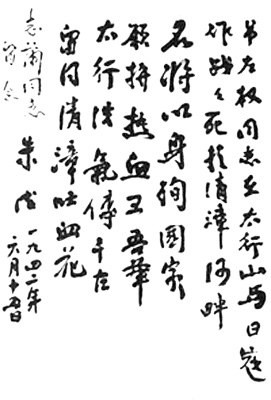 吊左权同志在太行山与日寇
作战々死于清漳河畔
名将以身殉國家
願拚热血卫吾華
太行浩氣傳千古
留得清漳吐血花
朱德 一九四二年
六月十五日
志蘭同志
留念